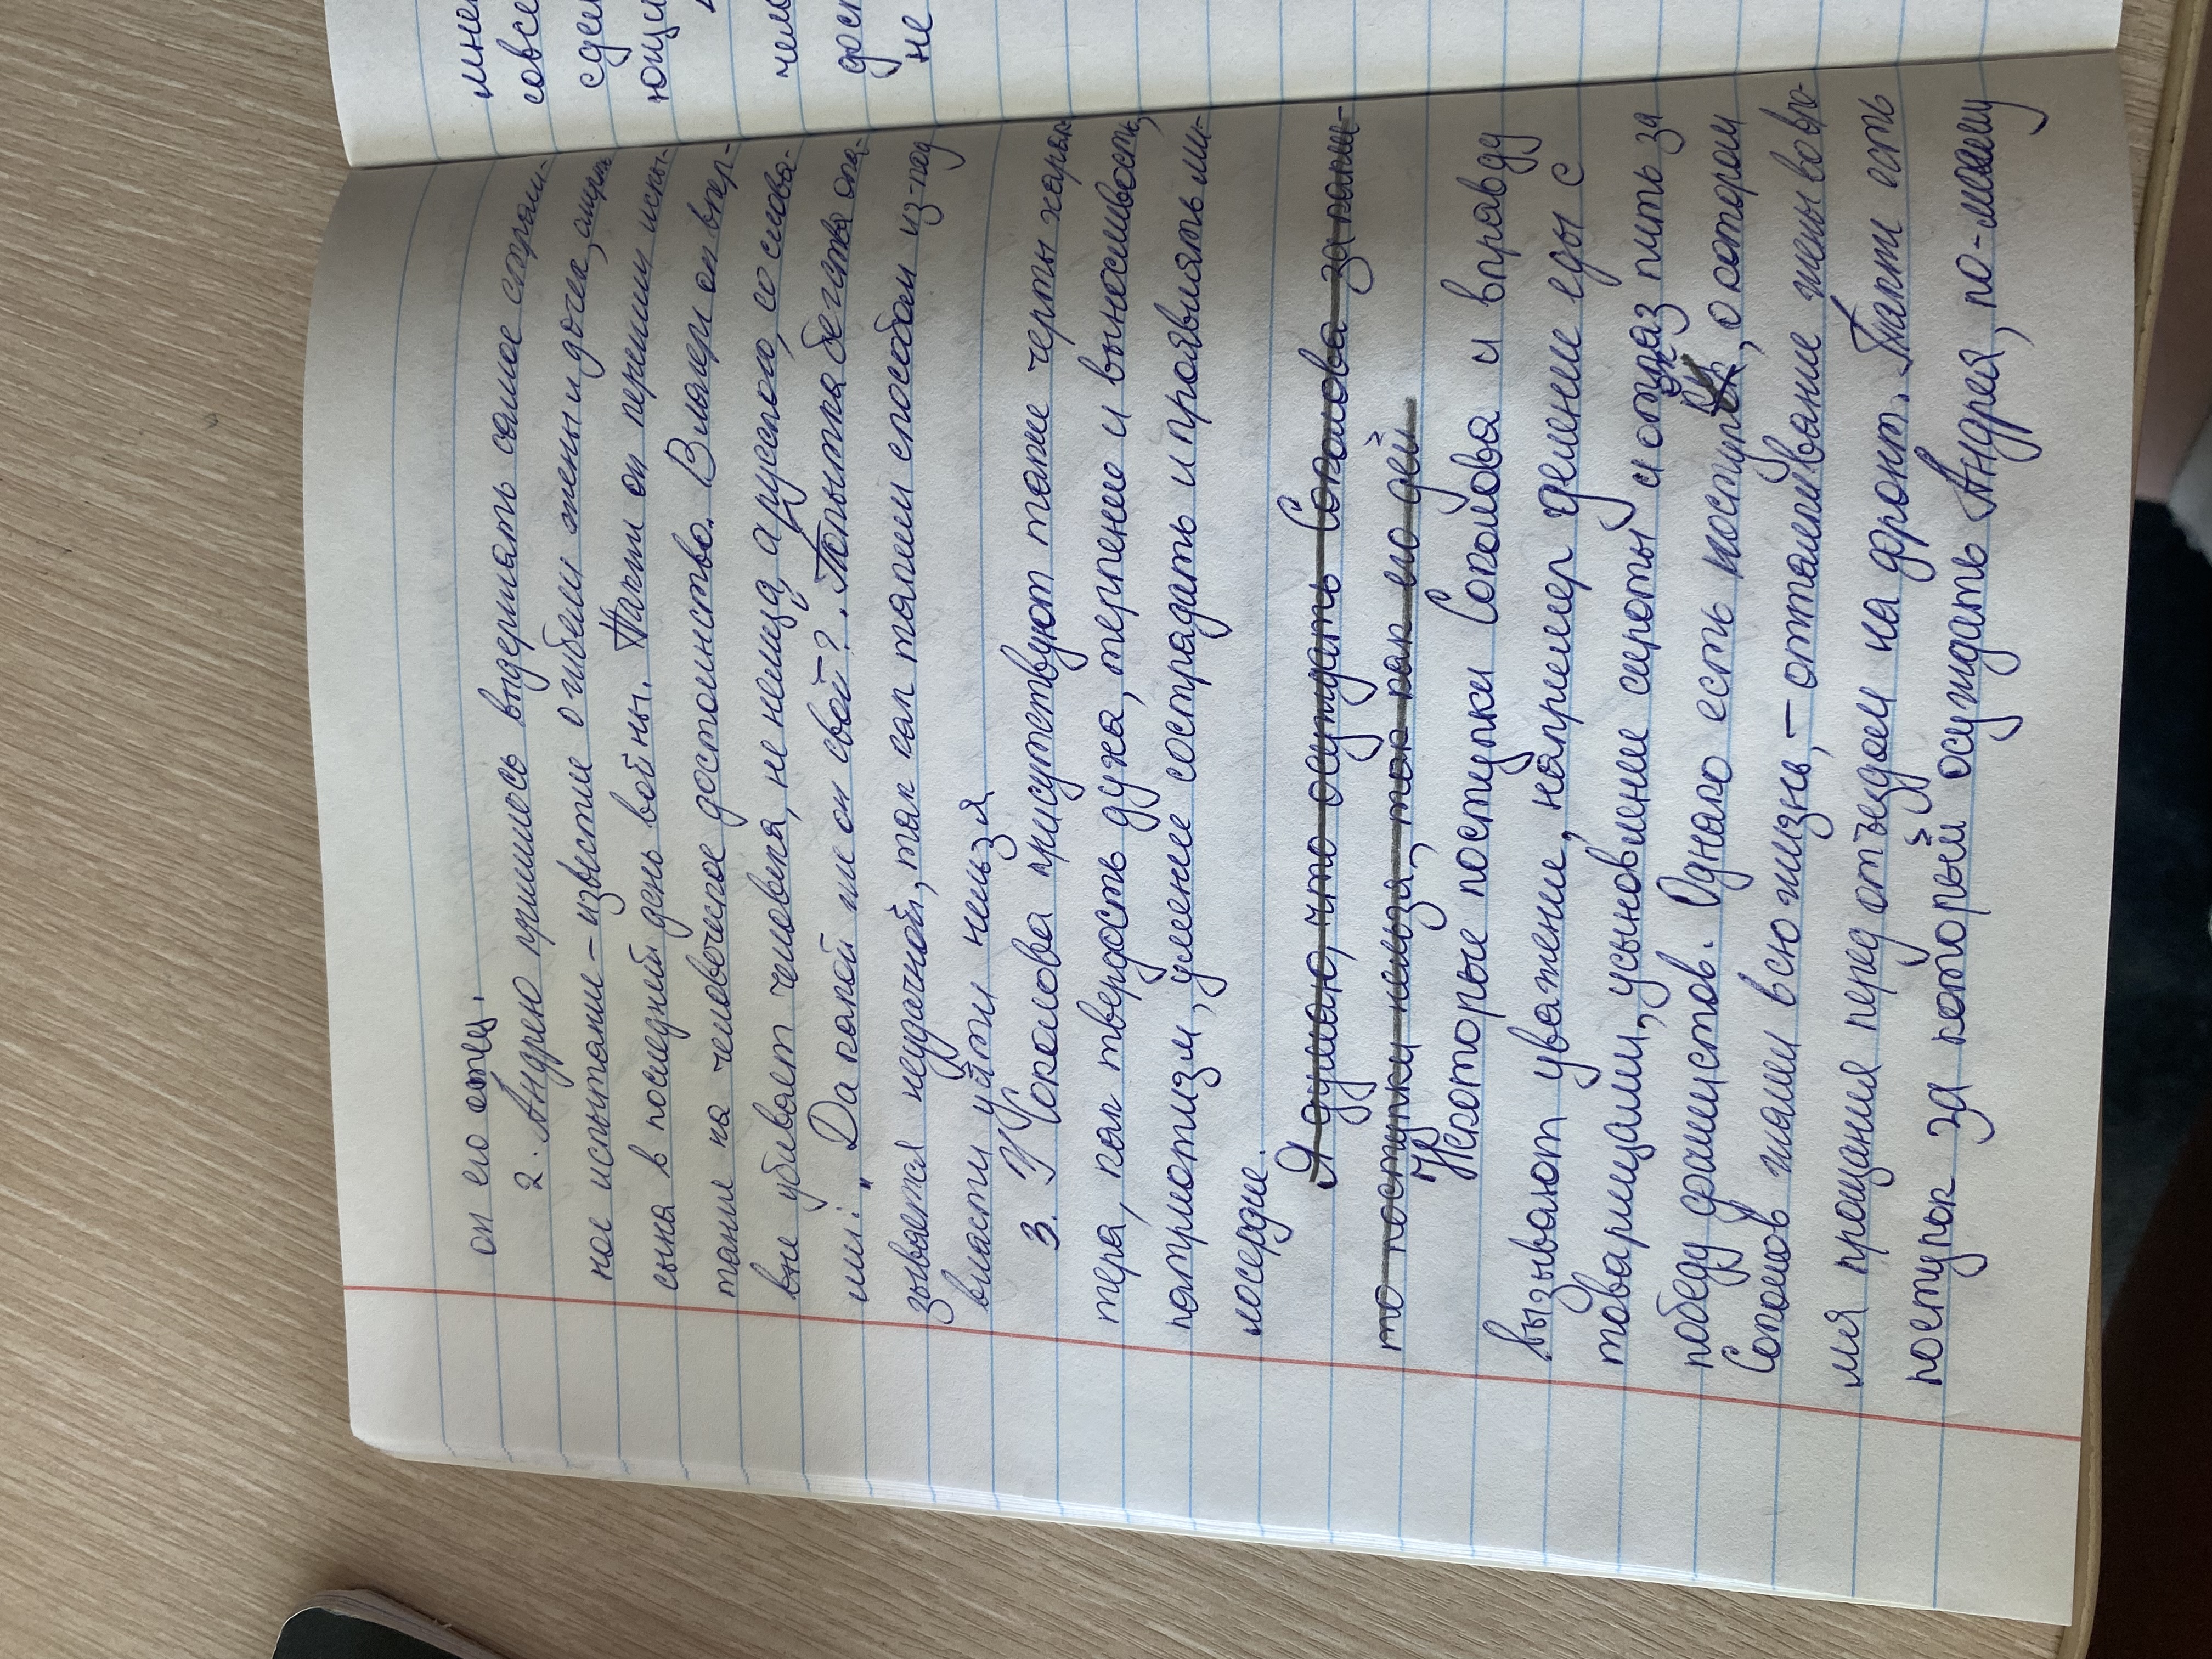 он его отец.
2. Андрею пришлось выдержать самое страш-
ное испытание – известие о гибели жены и дочек, смерть
сына в последний день войны. Также он пережил испы-
тание на человеческое достоинство. В плену он впер-
вые убивает человека, не немца, а русского, со слова-
ми: „Да какой же он свой?". Попытка бегства ока-
зывается неудачной, так как таким способом из-под
власти уйти нельзя
3. У Соколова присутствуют такие черты харак-
тера, как твердость духа, терпение и выносливость,
патриотизм, умение сострадать и проявлять ми-
лосердие.
Я думаю, что осуждать Соколова за каки-
то поступки нельзя, так как его дей
Некоторые поступки Соколова и вправду
вызывают уважение, например деление еды с
товарищами, усыновление сироты и отказ пить за
победу фашистов. Однако есть поступок, о котором
Соколов жалел всю жизнь, – отталкивание жены во вре-
мя прощания перед отъездом на фронт. Также есть
поступок за который осуждать Андрея, по-моему
мне
совсе
сдел
ющи
чело
дост
не